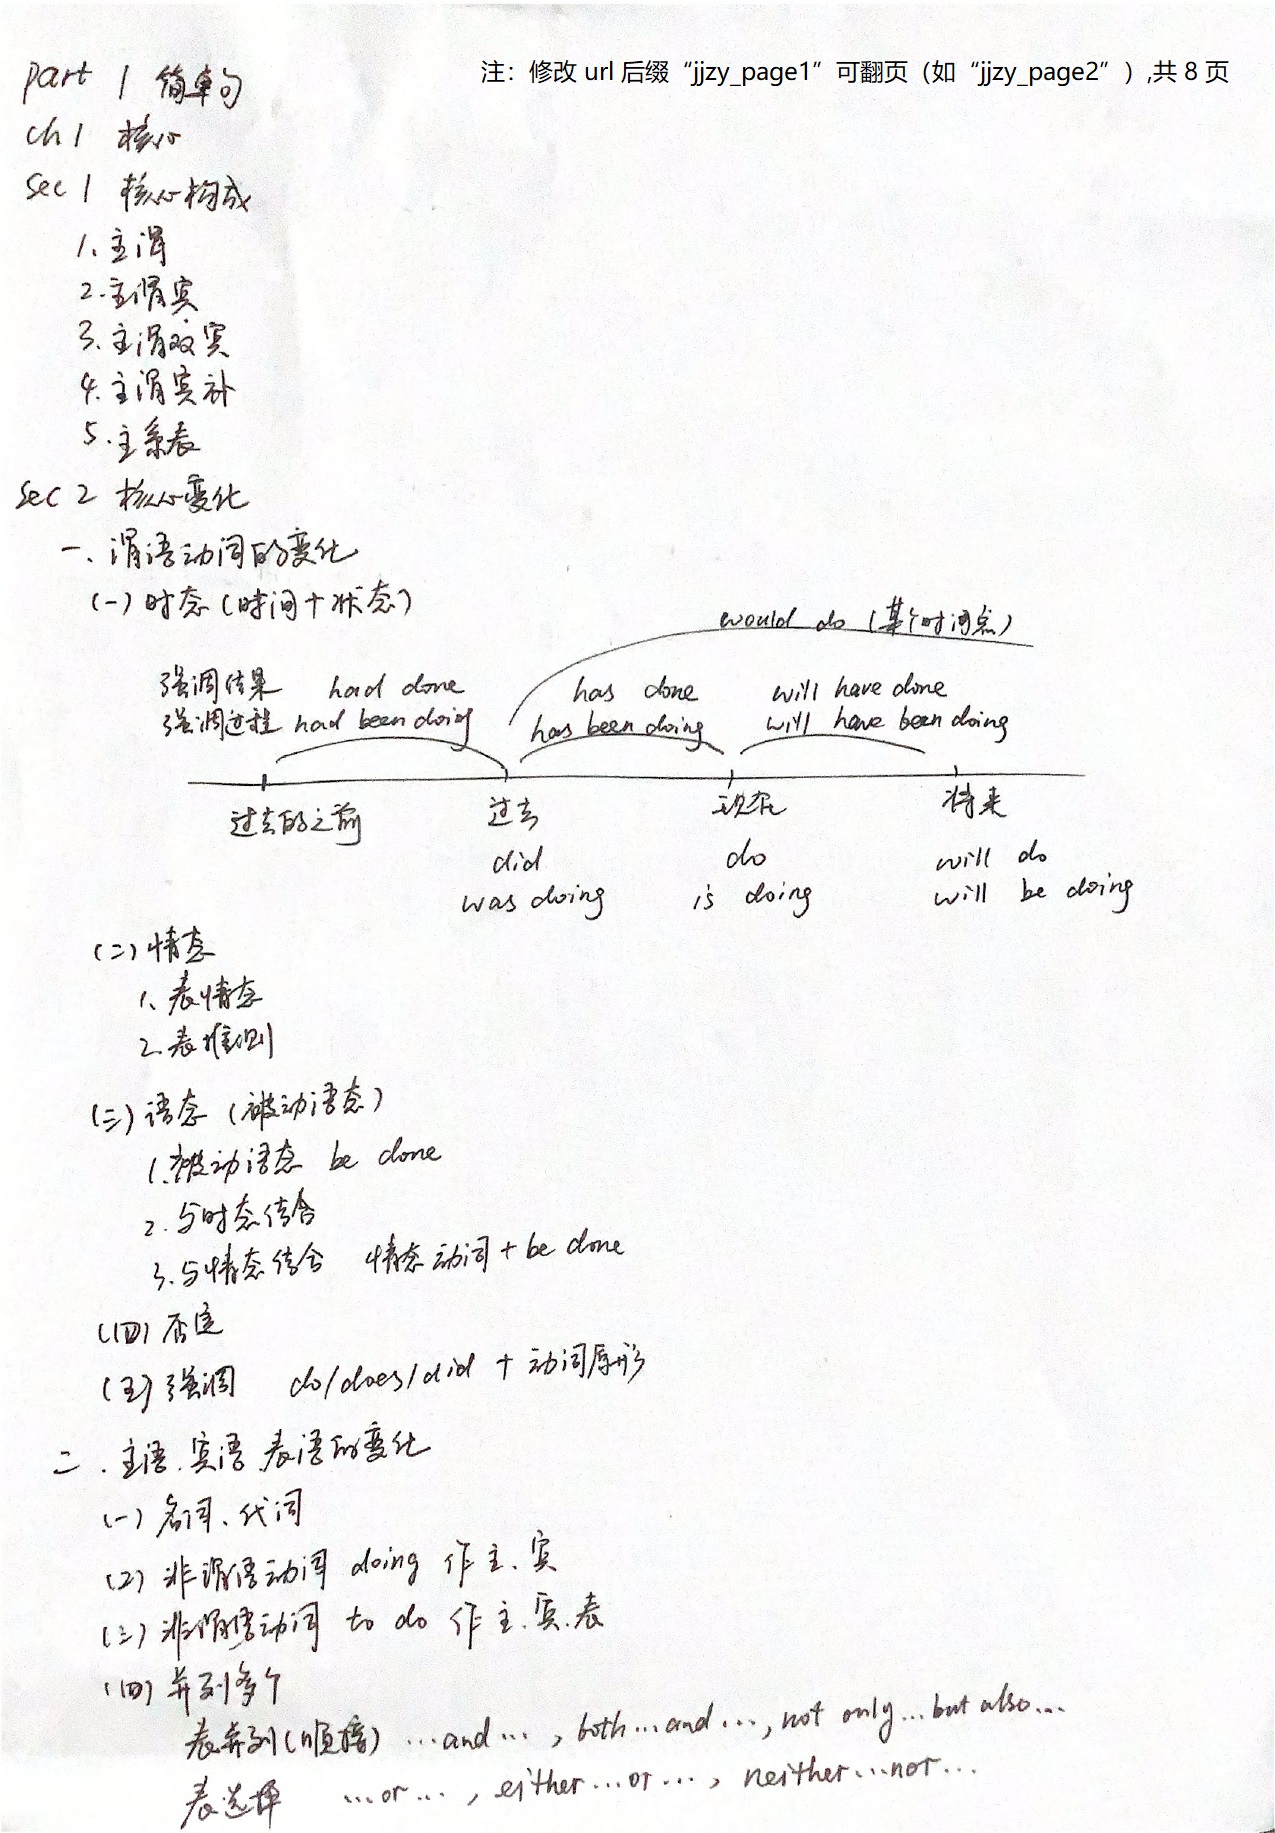 注：修改 url 后缀“jjzy_page1”可翻页（如“jjzy_page2”）,共 8 页
part 1 简单句
ch 1 核心
Sec 1 核心构成
1、主谓
2.主谓宾
3.主谓双宾
4.主谓宾补
5.主系表
Sec 2 核心变化
一、谓语动词的变化
(一) 时态 (时间+状态)
would do (某个时间点)
强调结果 had done has done will have done
强调过程 had been doing has been doing will have been doing
过去的之前 过去 现在 将来
did do will do
was doing is doing will be doing
(二) 情态
1、表情态
2.表推测
(三) 语态 (被动语态)
1.被动语态 be done
2.与时态结合
3.与情态结合 情态动词+be done
(四) 否定
(五) 强调 do/does/did + 动词原形
二.主语.宾语.表语的变化
(一) 名词、代词
(2) 非谓语动词 doing 作主、宾
(三) 非谓语动词 to do 作主.宾.表
(四) 并列多个
表并列(顺接) …and…, both…and…, not only…but also…
表选择 …or…, either…or…, neither…nor…